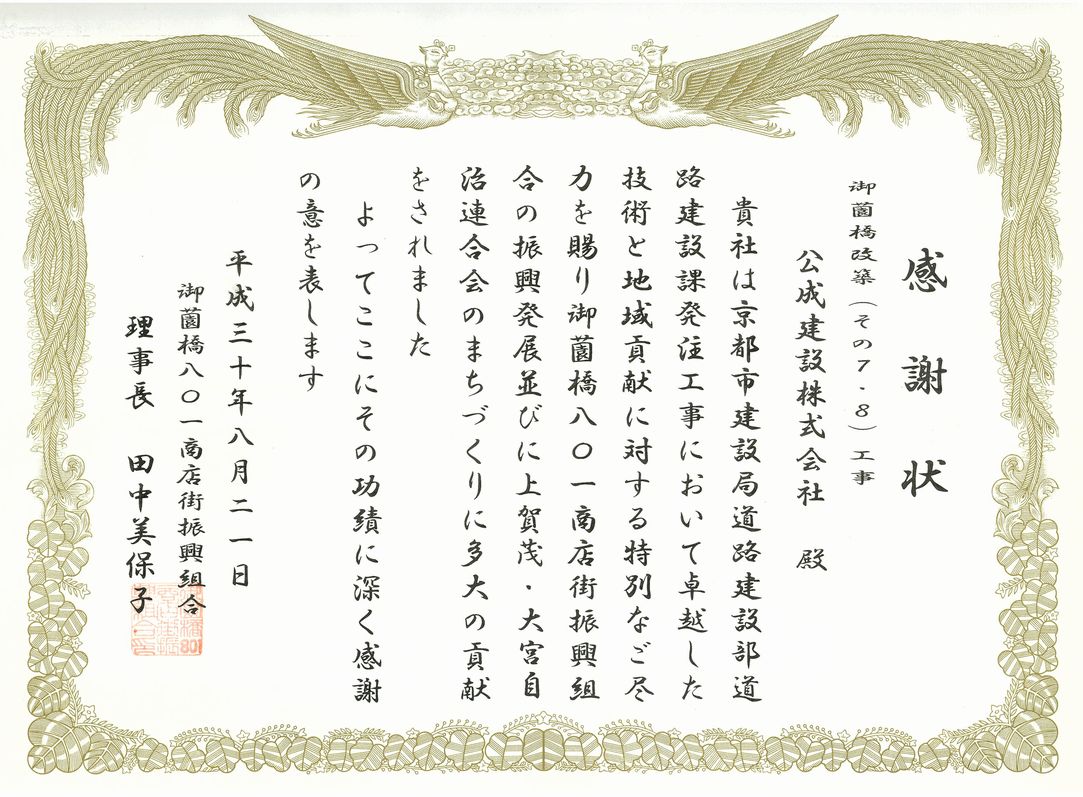 感謝状
御薗橋改築（その７・８）工事
公成建設株式会社　殿
貴社は京都市建設局道路建設部道
路建設課発注工事において卓越した
技術と地域貢献に対する特別なご尽
力を賜り御薗橋八〇一商店街振興組
合の振興発展並びに上賀茂・大宮自
治連合会のまちづくりに多大の貢献
をされました
よってここにその功績に深く感謝
の意を表します
平成三十年八月二一日
御薗橋八〇一商店街振興組合
理事長　田中美保子